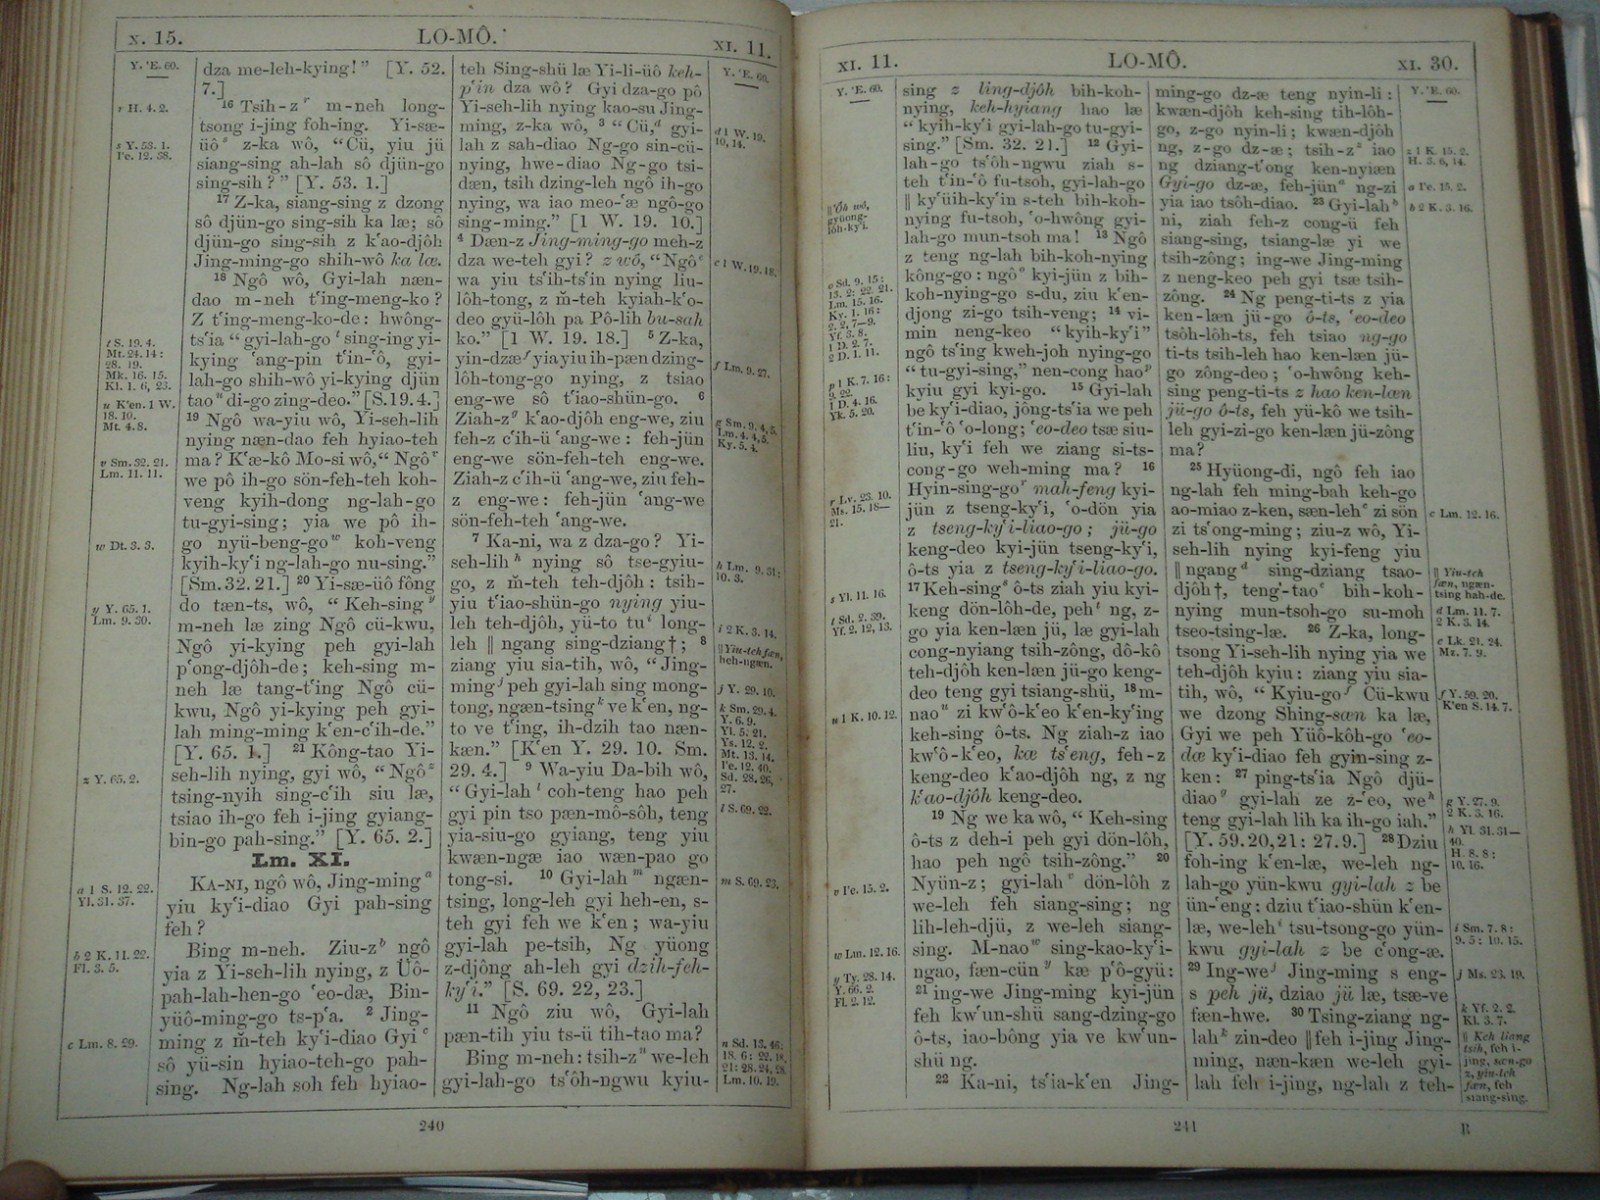 x. 15.
LO-MÔ.
XI. 11.
Y. 'E. 60.
r H. 4. 2.
s Y. 53. 1.
t S. 19. 4.
Mt. 24. 14 :
28. 19.
Mk. 16. 15.
Kl. 1. 6, 23.
u K'en. 1 W.
18. 10.
Mt. 4. 8.
v Sm. 32. 21.
Lm. 11. 11.
w Dt. 3. 3.
y Y. 65. 1.
Lm. 9. 30.
z Y. 65. 2.
a 1 S. 12. 22.
Yl. 31. 37.
b 2 K. 11. 22.
Fl. 3. 5.
c Lm. 8. 29.
dza me-leh-kying!” [Y. 52.
7.]
16 Tsih-z r m-neh long-
tsong i-jing foh-ing. Yi-sæ-
üô s z-ka wô, “Cü, yiu jü
siang-sing ah-lah sô djün-go
sing-sih?” [Y. 53. 1.]
17 Z-ka, siang-sing z dzong
sô djün-go sing-sih ka læ; sô
djün-go sing-sih z k‘ao-djôh
Jing-ming-go shih-wô ka læ.
18 Ngô wô, Gyi-lah næn-
dao m-neh t‘ing-meng-ko?
Z t‘ing-meng-ko-de: hwông-
ts‘ia “gyi-lah-go t sing-ing yi-
kying ‘ang-pin t‘in-‘ô, gyi-
lah-go shih-wô yi-kying djün
tao u di-go zing-deo.” [S.19.4.]
19 Ngô wa-yiu wô, Yi-seh-lih
nying næn-dao feh hyiao-teh
ma? K‘æ-kô Mo-si wô, “Ngô v
we pô ih-go sön-feh-teh koh-
veng kyih-dong ng-lah-go
tu-gyi-sing; yia we pô ih-
go nyü-beng-go w koh-veng
kyih-ky‘i ng-lah-go nu-sing.”
[Sm. 32. 21.] 20 Yi-sæ-üô fông
do tæn-ts, wô, “Keh-sing y
m-neh læ zing Ngô cü-kwu,
Ngô yi-kying peh gyi-lah
p‘ong-djôh-de; keh-sing m-
neh læ tang-t‘ing Ngô cü-
kwu, Ngô yi-kying peh gyi-
lah ming-ming k‘en-c‘ih-de.”
[Y. 65. 1.] 21 Kông-tao Yi-
seh-lih nying, gyi wô, “Ngô z
tsing-nyih sing-c‘ih siu læ,
tsiao ih-go feh i-jing gyiang-
bin-go pah-sing.” [Y. 65. 2.]
Lm. XI.
KA-NI, ngô wô, Jing-ming a
yiu ky‘i-diao Gyi pah-sing
feh?
Bing m-neh. Ziu-z b ngô
yia z Yi-seh-lih nying, z Üô-
pah-lah-hen-go ‘eo-dæ, Bin-
yüô-ming-go ts-p‘a. 2 Jing-
ming z m̄-teh ky‘i-diao Gyi c
sô yü-sin hyiao-teh-go pah-
sing. Ng-lah soh feh hyiao-
teh Sing-shü læ Yi-li-üô keh-
p‘in dza wô? Gyi dza-go pô
Yi-seh-lih nying kao-su Jing-
ming, z-ka wô, 3 “Cü, d gyi-
lah z sah-diao Ng-go sin-cü-
nying, hwe-diao Ng-go tsi-
dæn, tsih dzing-leh ngô ih-go
nying, wa iao meo-‘æ ngô-go
sing-ming.” [1 W. 19. 10.]
4 Dæn-z Jing-ming-go meh-z
dza we-teh gyi? z wô, “Ngô e
wa yiu ts‘ih-ts‘in nying liu-
lôh-tong, z m̄-teh kyiah-k‘o-
deo gyü-lôh pa Pô-lih bu-sah
ko.” [1 W. 19. 18.] 5 Z-ka,
yin-dzæ f yia yiu ih-pæn dzing-
lôh-tong-go nying, z tsiao
eng-we sô t‘iao-shün-go. 6
Ziah-z g k‘ao-djôh eng-we, ziu
feh-z c‘ih-ü ‘ang-we: feh-jün
eng-we sön-feh-teh eng-we.
Ziah-z c‘ih-ü ‘ang-we, ziu feh-
z eng-we: feh-jün ‘ang-we
sön-feh-teh ‘ang-we.
7 Ka-ni, wa z dza-go? Yi-
seh-lih h nying sô tse-gyiu-
go, z m̄-teh teh-djôh: tsih-
yiu t‘iao-shün-go nying yiu-
leh teh-djôh, yü-to tu i long-
leh || ngang sing-dziang†; 8
ziang yiu sia-tih, wô, “Jing-
ming j peh gyi-lah sing mong-
tong, ngæn-tsing k ve k‘en, ng-
to ve t‘ing, ih-dzih tao næn-
kæn.” [K‘en Y. 29. 10. Sm.
29. 4.] 9 Wa-yiu Da-bih wô,
“Gyi-lah l coh-teng hao peh
gyi pin tso pæn-mô-sôh, teng
yia-siu-go gyiang, teng yiu
kwæn-ngæ iao wæn-pao go
tong-si. 10 Gyi-lah m ngæn-
tsing, long-leh gyi heh-en, s-
teh gyi feh we k‘en; wa-yiu
gyi-lah pe-tsih, Ng yüong
z-djông ah-leh gyi dzih-feh-
ky‘i.” [S. 69. 22, 23.]
11 Ngô ziu wô, Gyi-lah
pæn-tih yiu ts-ü tih-tao ma?
Bing m-neh: tsih-z n we-leh
gyi-lah-go ts‘ôh-ngwu kyiu-
g Sm. 9. 4, 5.
Lm. 4. 4, 5.
Ky. 5. 4.
h Lm. 9. 31:
10. 3.
i 2 K. 3. 14.
|| Yiu-teh fæn,
heh-ngæn.
j Y. 29. 10.
k Sm. 29. 4.
Y. 6. 9.
Yl. 5. 21.
Mt. 13. 14.
l S. 69. 22.
m S. 69. 23.
n Sd. 13. 46:
Lm. 10. 19.
240
XI. 11.
LO-MÔ.
XI. 30.
Y. 'E. 60.
o Sd. 9. 15:
13. 2: 22. 21.
Lm. 15. 16.
Ky. 1. 16:
2. 2, 7—9.
Yf. 3. 8.
1 D. 2. 7.
2 D. 1. 11.
p 1 K. 7. 16:
9. 22.
1 D. 4. 16.
Yk. 5. 20.
r Lv. 23. 10.
Ms. 15. 18—
21.
s Yl. 11. 16.
t Sd. 2. 39.
Yf. 2. 12, 13.
u 1 K. 10. 12.
v Pe. 15. 2.
w Lm. 12. 16.
y Ty. 28. 14.
Y. 66. 2.
Fl. 2. 12.
sing z ling-djôh bih-koh-
nying, keh-hyiang hao læ
“kyih-ky‘i gyi-lah-go tu-gyi-
sing.” [Sm. 32. 21.] 12 Gyi-
lah-go ts‘ôh-ngwu ziah s-
teh t‘in-‘ô fu-tsoh, gyi-lah-go
|| ky‘üih-ky‘in s-teh bih-koh-
nying fu-tsoh, ‘o-hwông gyi-
lah-go mun-tsoh ma! 13 Ngô
z teng ng-lah bih-koh-nying
kông-go: ngô o kyi-jün z bih-
koh-nying-go s-du, ziu k‘en-
djong zi-go tsih-veng; 14 vi-
min neng-keo “kyih-ky‘i”
ngô ts‘ing kweh-joh nying-go
“tu-gyi-sing,” nen-cong hao p
kyiu gyi kyi-go. 15 Gyi-lah
be ky‘i-diao, jông-ts‘ia we peh
t‘in-‘ô ‘o-long; ‘eo-deo tsæ siu-
liu, ky‘i feh we ziang si-ts-
cong-go weh-ming ma? 16
Hyin-sing-go r mah-feng kyi-
jün z tseng-ky‘i, ‘o-dön yia
z tseng-ky‘i-liao-go; jü-go
keng-deo kyi-jün tseng-ky‘i,
ô-ts yia z tseng-ky‘i-liao-go.
17 Keh-sing s ô-ts ziah yiu kyi-
keng dön-lôh-de, peh t ng, z-
go yia ken-læn jü, læ gyi-lah
cong-nyiang tsih-zông, dô-kô
teh-djôh ken-læn jü-go keng-
deo teng gyi tsiang-shü, 18 m-
nao u zi kw‘ô-k‘eo k‘en-ky‘ing
keh-sing ô-ts. Ng ziah-z iao
kw‘ô-k‘eo, kæ ts‘eng, feh-z
keng-deo k‘ao-djôh ng, z ng
k‘ao-djôh keng-deo.
19 Ng we ka wô, “Keh-sing
ô-ts z deh-i peh gyi dön-lôh,
hao peh ngô tsih-zông.” 20
Nyün-z; gyi-lah v dön-lôh z
we-leh feh siang-sing; ng
lih-leh-djü, z we-leh siang-
sing. M-nao w sing-kao-ky‘i-
ngao, fæn-cün y kæ p‘ô-gyü:
21 ing-we Jing-ming kyi-jün
feh kw‘un-shü sang-dzing-go
ô-ts, iao-bông yia ve kw‘un-
shü ng.
22 Ka-ni, ts‘ia-k‘en Jing-
ming-go dz-æ teng nyin-li:
kwæn-djôh keh-sing tih-lôh-
go, z-go nyin-li; kwæn-djôh
ng, z-go dz-æ; tsih-z z iao
ng dziang-t‘ong ken-nyiæn
Gyi-go dz-æ, feh-jün a ng-zi
yia iao tsôh-diao. 23 Gyi-lah b
ni, ziah feh-z cong-ü feh
siang-sing, tsiang-læ yi we
tsih-zông; ing-we Jing-ming
z neng-keo peh gyi tsæ tsih-
zông. 24 Ng peng-ti-ts z yia
ken-læn jü-go ô-ts, ‘eo-deo
tsôh-lôh-ts, feh tsiao ng-go
ti-ts tsih-leh hao ken-læn jü-
go zông-deo; ‘o-hwông keh-
sing peng-ti-ts z hao ken-læn
jü-go ô-ts, feh yü-kô we tsih-
leh gyi-zi-go ken-læn jü-zông
ma?
25 Hyüong-di, ngô feh iao
ng-lah feh ming-bah keh-go
ao-miao z-ken, sæn-leh c zi sön
zi ts‘ong-ming; ziu-z wô, Yi-
seh-lih nying kyi-feng yiu
|| ngang d sing-dziang tsao-
djôh†, teng-tao e bih-koh-
nying mun-tsoh-go su-moh
tseo-tsing-læ. 26 Z-ka, long-
tsong Yi-seh-lih nying yia we
teh-djôh kyiu: ziang yiu sia-
tih, wô, “Kyiu-go f Cü-kwu
we dzong Shing-sæn ka læ,
Gyi we peh Yüô-kôh-go ‘eo-
dæ ky‘i-diao feh gyin-sing z-
ken: 27 ping-ts‘ia Ngô djü-
diao g gyi-lah ze z-‘eo, we h
teng gyi-lah lih ka ih-go iah.”
[Y. 59.20,21: 27.9.] 28 Dziu
foh-ing k‘en-læ, we-leh ng-
lah-go yün-kwu gyi-lah z be
ün-‘eng: dziu t‘iao-shün k‘en-
læ, we-leh i tsu-tsong-go yün-
kwu gyi-lah z be c‘ong-æ.
29 Ing-we j Jing-ming s eng-
s peh jü, dziao jü læ, tsæ-ve
fæn-hwe. 30 Tsing-ziang ng-
lah k zin-deo || feh i-jing Jing-
ming, næn-kæn we-leh gyi-
lah feh i-jing, ng-lah z teh-
z 1 K. 15. 2.
H. 3. 6, 14.
b 2 K. 3. 16.
c Lm. 12. 16.
|| Yiu-teh
fæn, ngæn-
tsing hah-de.
d Lm. 11. 7.
2 K. 3. 14.
e Lk. 21. 24.
f Y. 59. 20.
K'en S. 14. 7.
g Y. 27. 9.
2 K. 3. 16.
h Yl. 31. 31—
40.
H. 8. 8:
10. 16.
i Sm. 7. 8:
9. 5: 10. 15.
j Ms. 23. 19.
k Yf. 2. 2.
Kl. 3. 7.
241
R